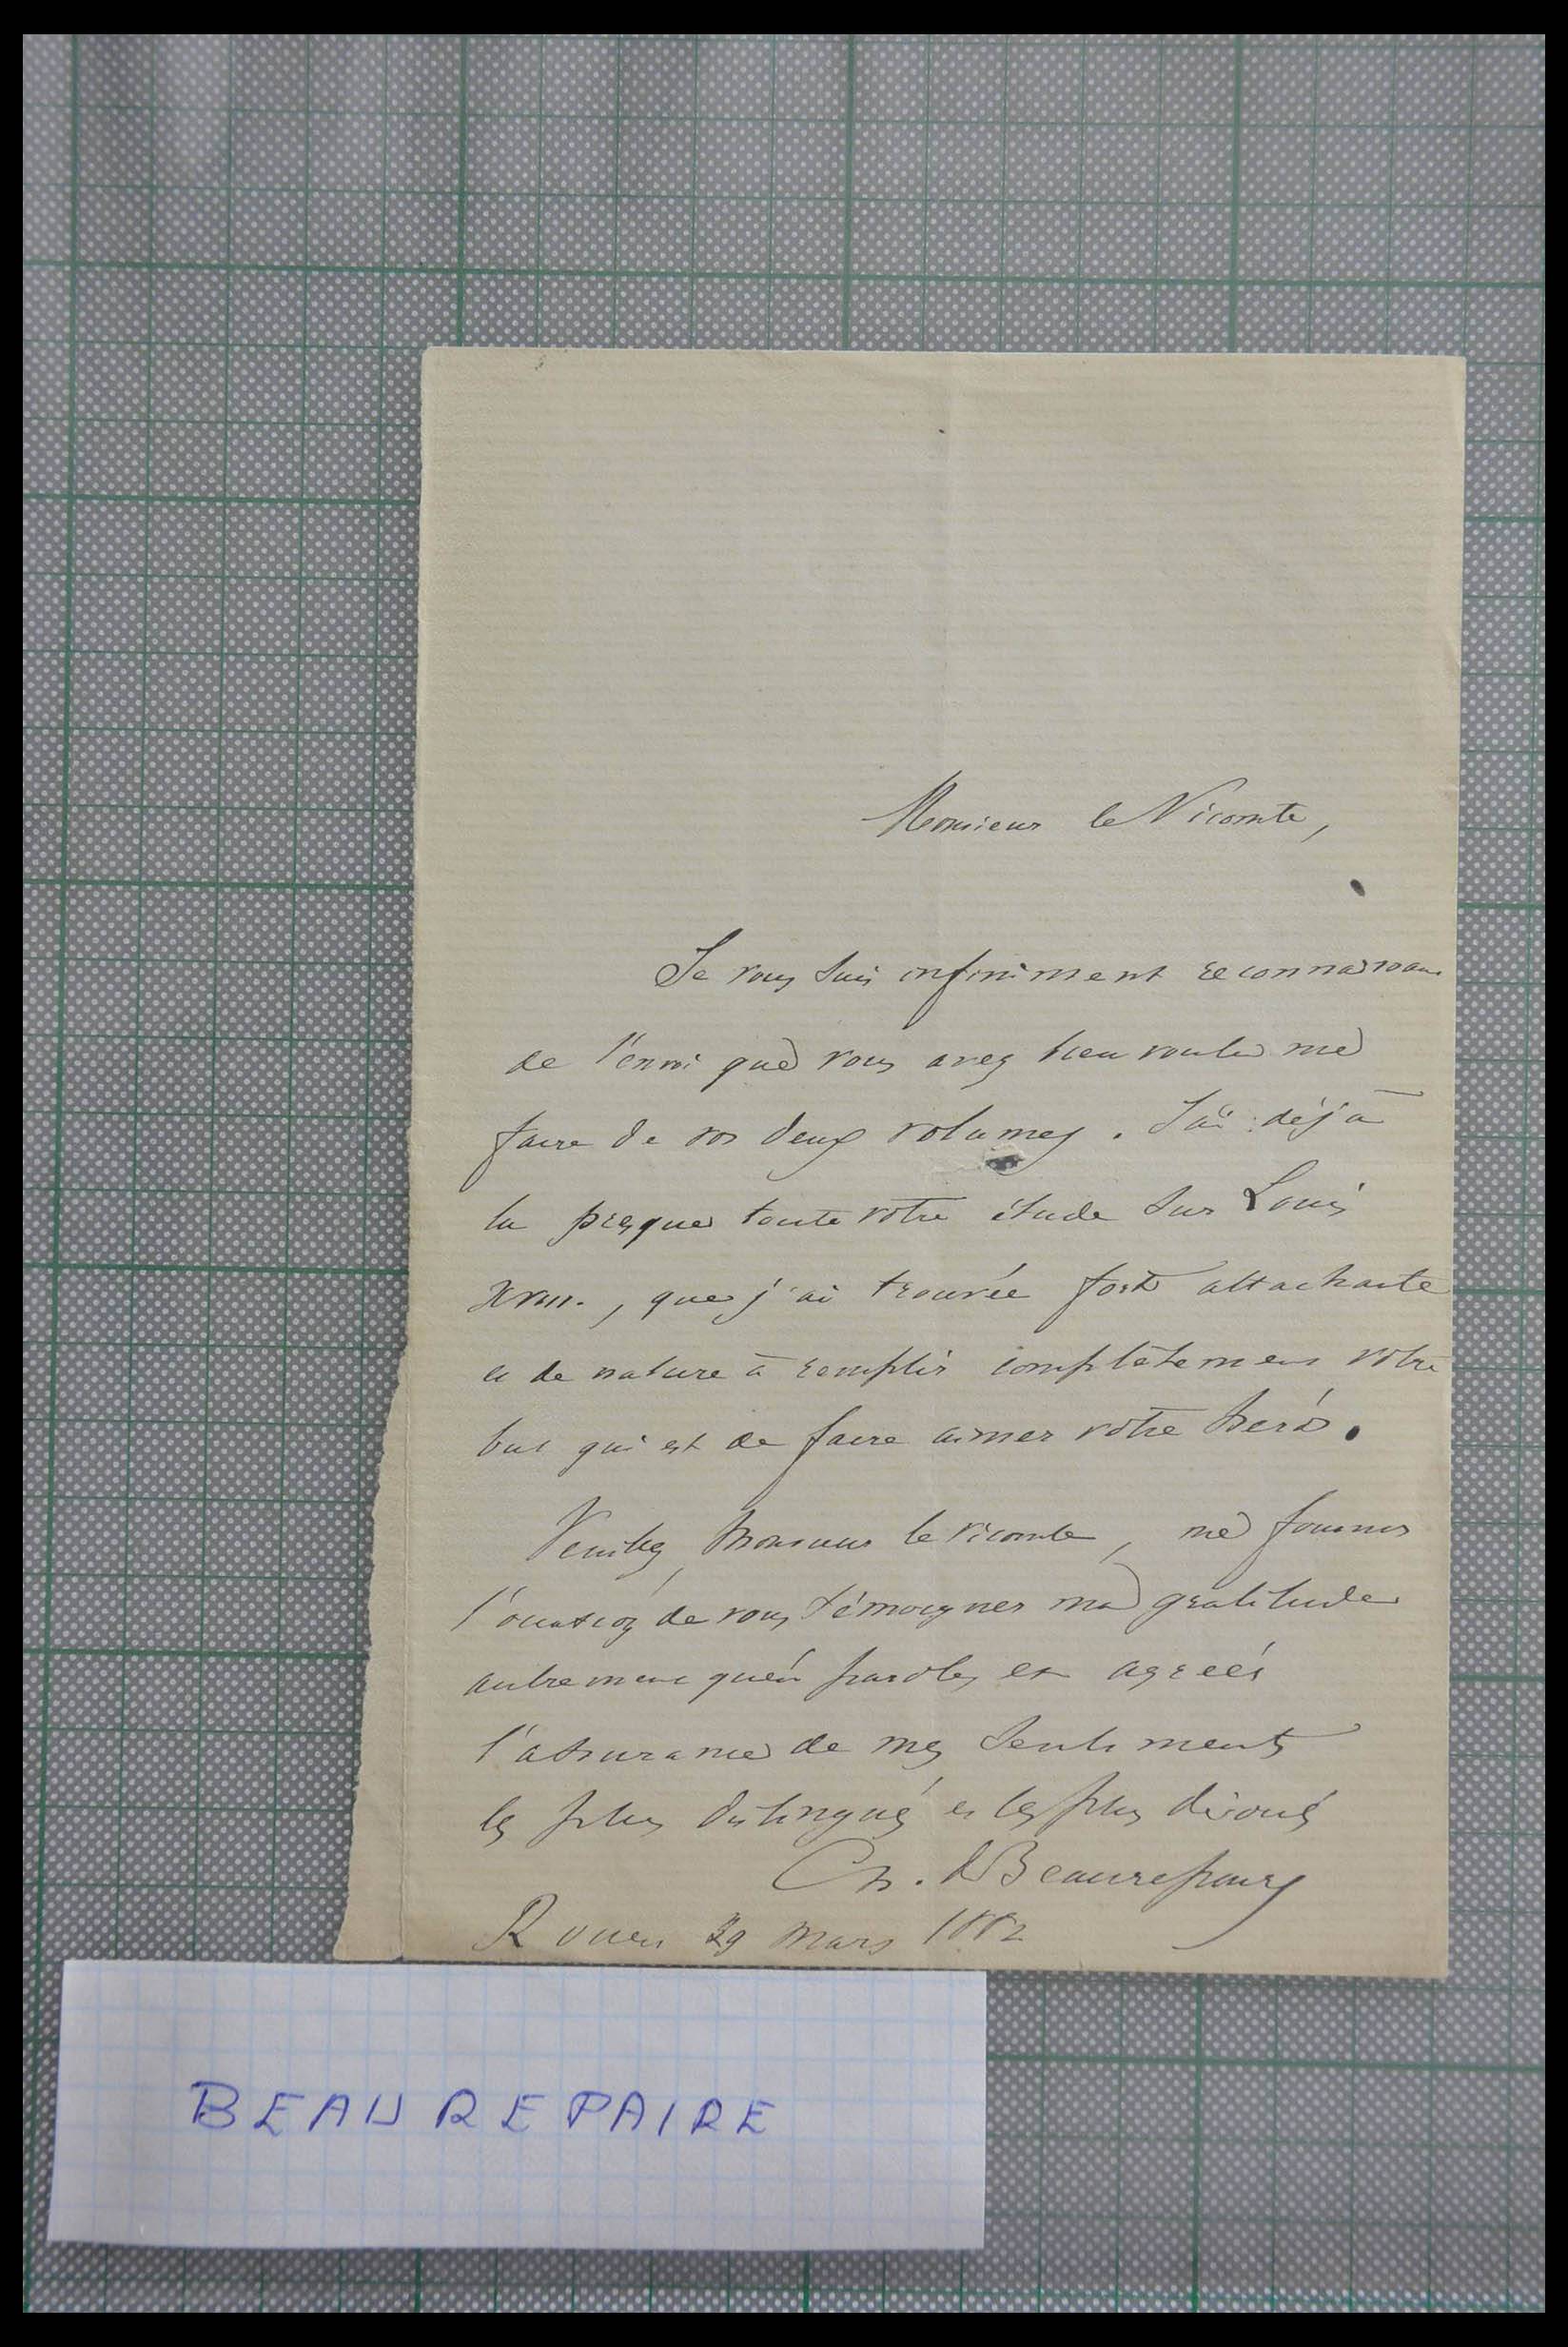 Monsieur le Vicomte,
Je vous suis infiniment reconnaissant
de l'envoi que vous avez bien voulu me
faire de vos deux volumes. J'ai déjà
lu presque toute votre étude sur Louis
XVIII., que j'ai trouvée fort attachante
et de nature à remplir complètement votre
but qui est de faire aimer votre héros.
Veuillez, Monsieur le vicomte, me fournir
l'occasion de vous témoigner ma gratitude
autrement qu'en paroles et agréer
l'assurance de mes sentiments
les plus distingués et les plus dévoués
Ch. de Beaurepaire
Rouen 29 mars 1882
BEAUREPAIRE